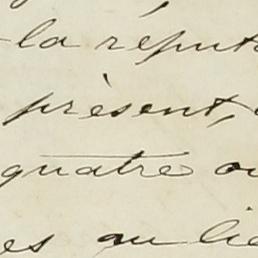 la réput
présent,
quatre ou
es au lie